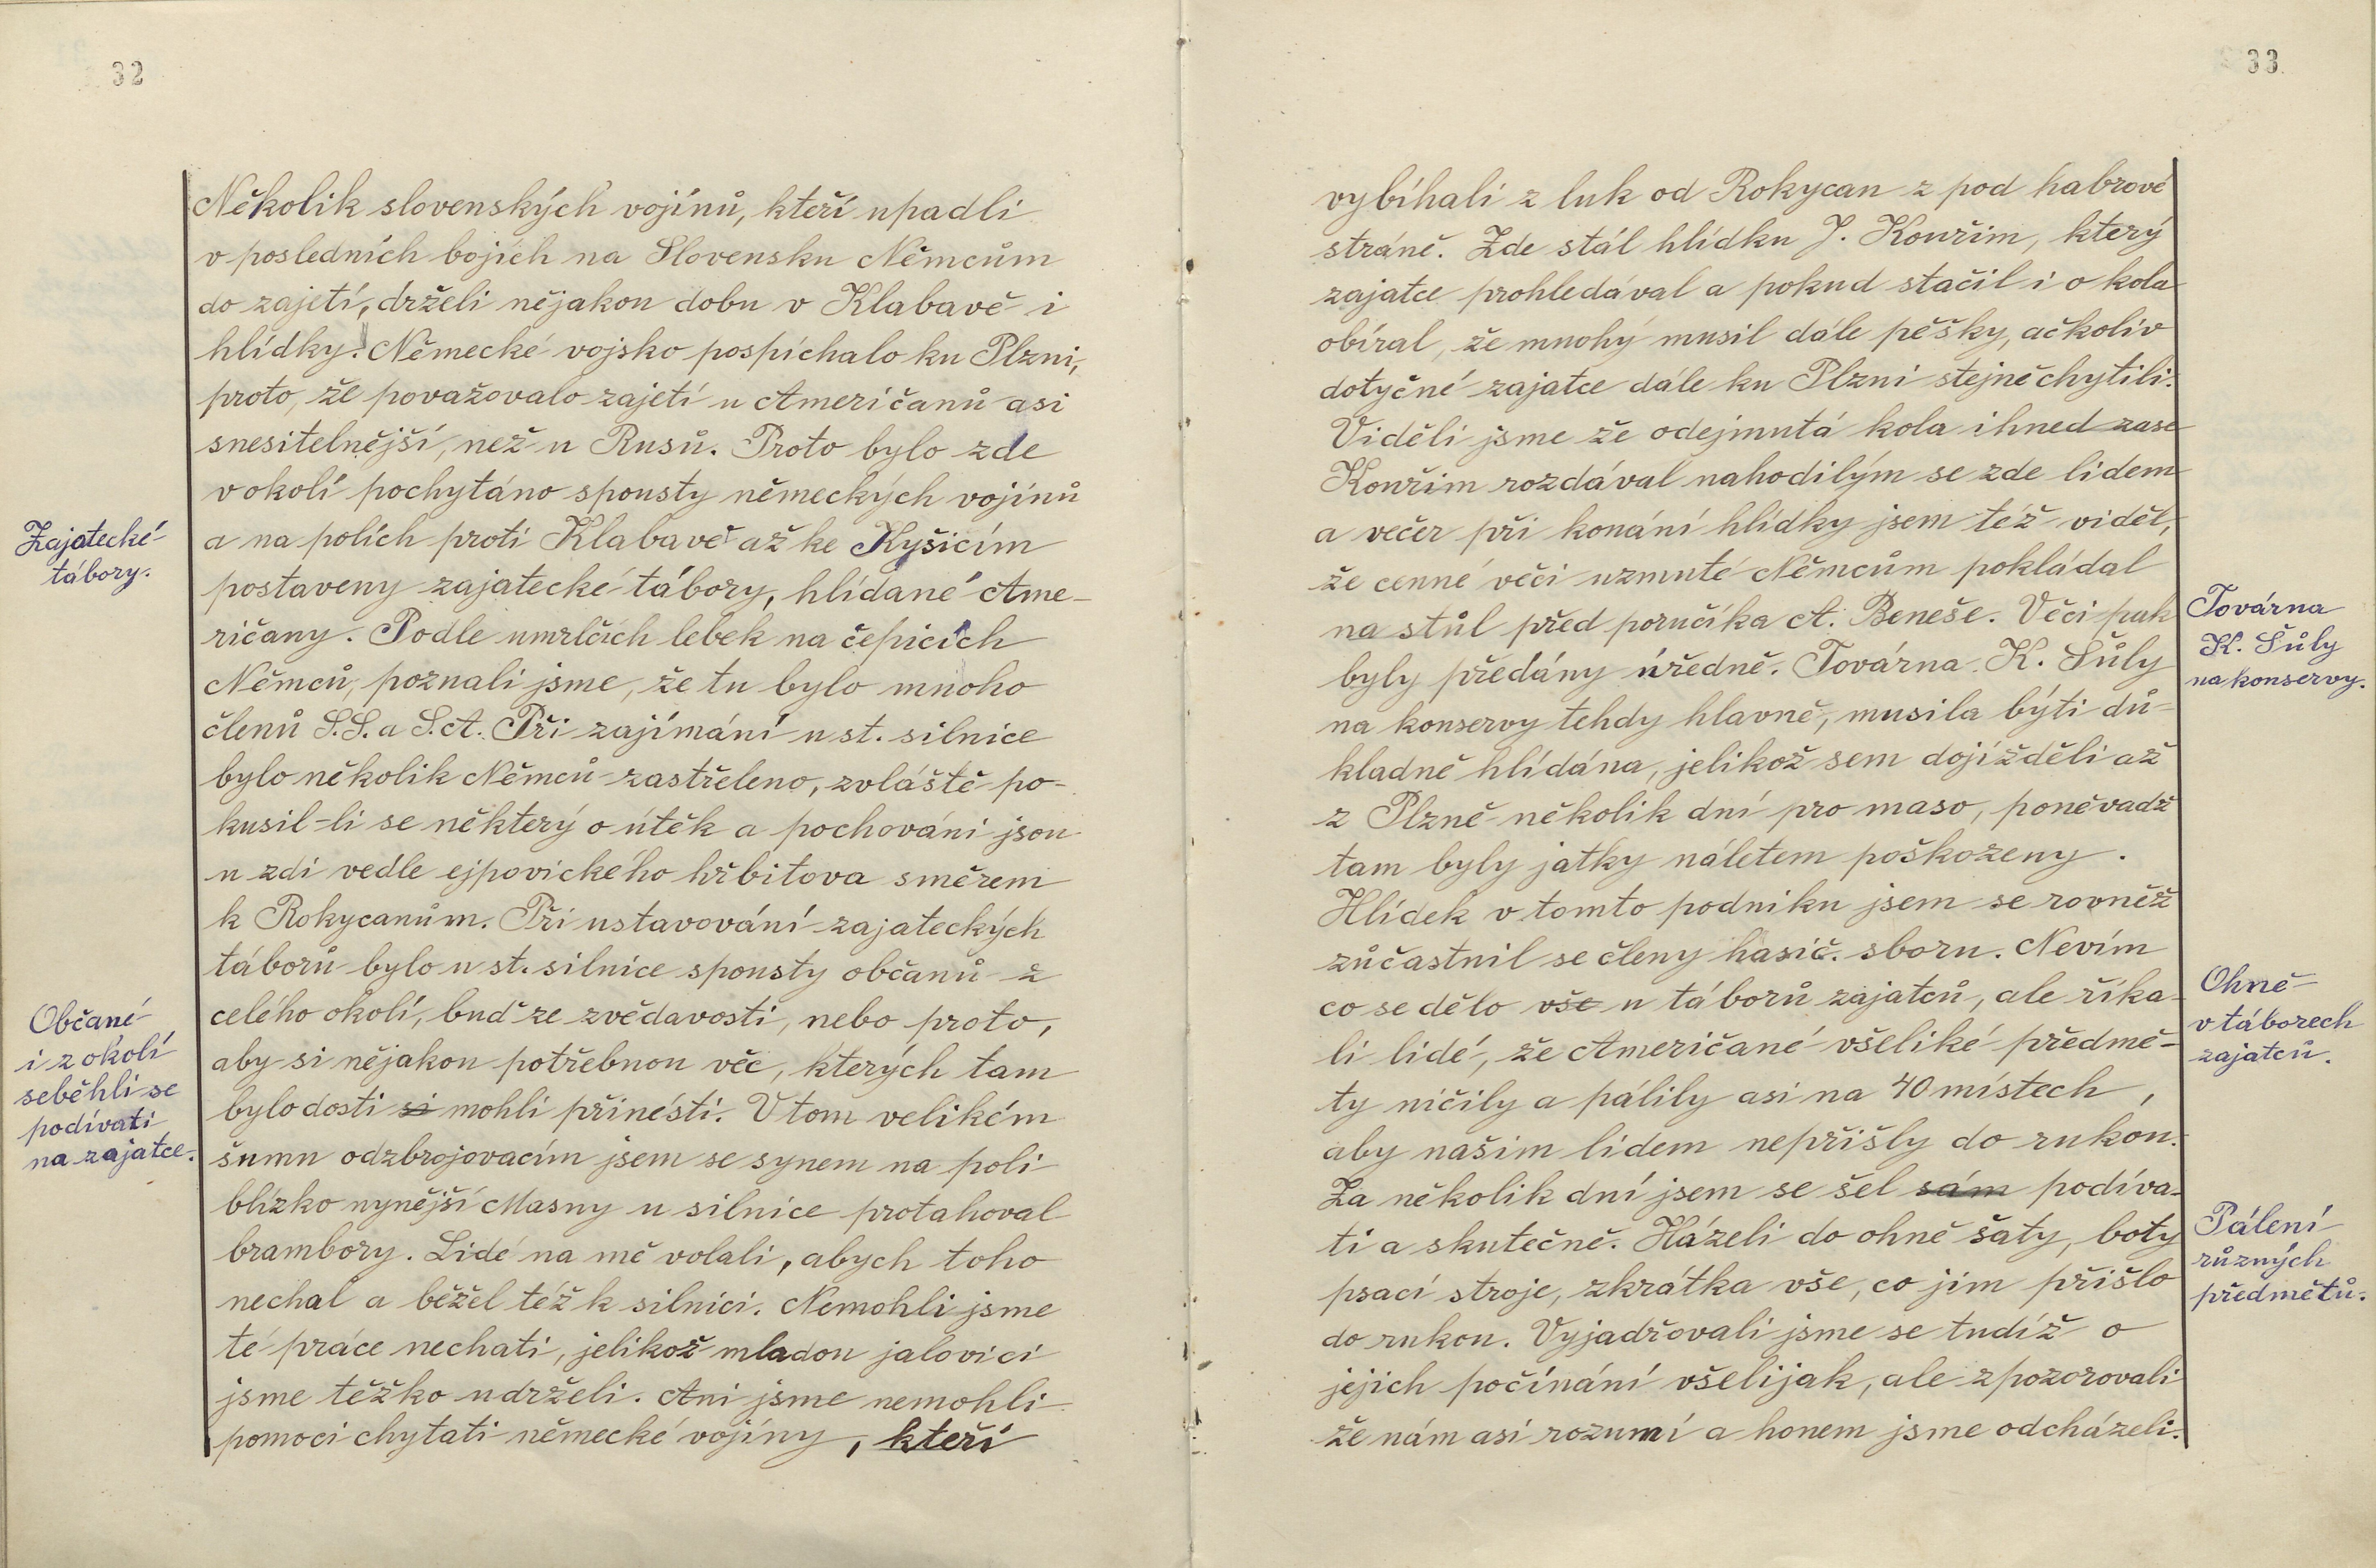 32
Několik slovenských vojínů, kteří upadli
v posledních bojích na Slovensku Němcům
do zajetí, drželi nějakou dobu v Klabavě i
hlídky. Německé vojsko pospíchalo ku Plzni,
proto, že považovalo zajetí u Američanů asi
snesitelnější, než u Rusů. Proto bylo zde
v okolí pochytáno spousty německých vojínů
Zajatecké
tábory.
a na polích proti Klabavě až ke Kyšicím
postaveny zajatecké tábory, hlídané Ame-
ričany. Podle umrlčích lebek na čepicích
Němců, poznali jsme, že tu bylo mnoho
členů S.S. a S.A. Při zajímání u st. silnice
bylo několik Němců zastřeleno, zvláště po-
kusil-li se některý o útěk a pochováni jsou
u zdi vedle ejpovického hřbitova směrem
k Rokycanům. Při ustavování zajateckých
táborů bylo u st. silnice spousty občanů z
Občané
i z okolí
seběhli se
podívati
na zajatce.
celého okolí, buď ze zvědavosti, nebo proto,
aby si nějakou potřebnou věc, kterých tam
bylo dosti si mohli přinésti. V tom velikém
šumu odzbrojovacím jsem se synem na poli
blízko nynější Masny u silnice protahoval
brambory. Lidé na mě volali, abych toho
nechal a běžel též k silnici. Nemohli jsme
té práce nechati, jelikož mladou jalovici
jsme těžko udrželi. Ani jsme nemohli
pomoci chytati německé vojíny, kteří
33
vybíhali z luk od Rokycan z pod habrové
stráně. Zde stál hlídku J. Kouřim, který
zajatce prohledával a pokud stačil i o kola
obíral, že mnohý musil dále pěšky, ačkoliv
dotyčné zajatce dále ku Plzni stejně chytili.
Viděli jsme že odejmutá kola ihned zase
Kouřim rozdával nahodilým se zde lidem
a večer při konání hlídky jsem též viděl,
že cenné věci uzmuté Němcům pokládal
na stůl před poručíka A. Beneše. Věci pak
Továrna
K. Šůly
na konservy.
byly předány úředně. Továrna K. Šůly
na konservy tehdy hlavně, musila býti dů-
kladně hlídána, jelikož sem dojížděli až
z Plzně několik dní pro maso, poněvadž
tam byly jatky náletem poškozeny.
Hlídek v tomto podniku jsem se rovněž
zůčastnil se členy hasič. sboru. Nevím
Ohně
v táborech
zajatců.
co se dělo vše u táborů zajatců, ale říka-
li lidé, že Američané všeliké předmě-
ty ničily a pálily asi na 40 místech,
aby našim lidem nepřišly do rukou.
Za několik dní jsem se šel sám podíva-
Pálení
různých
předmětů.
ti a skutečně. Házeli do ohně šaty, boty
psací stroje, zkrátka vše, co jim přišlo
do rukou. Vyjadřovali jsme se tudíž o
jejich počínání všelijak, ale zpozorovali
že nám asi rozumí a honem jsme odcházeli.